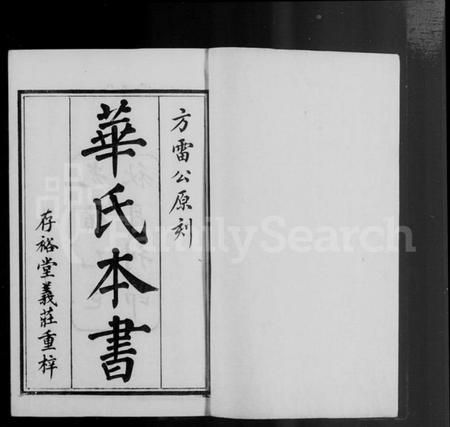 方雷公原刻
華氏本書
存裕堂義莊重梓
FamilySearch